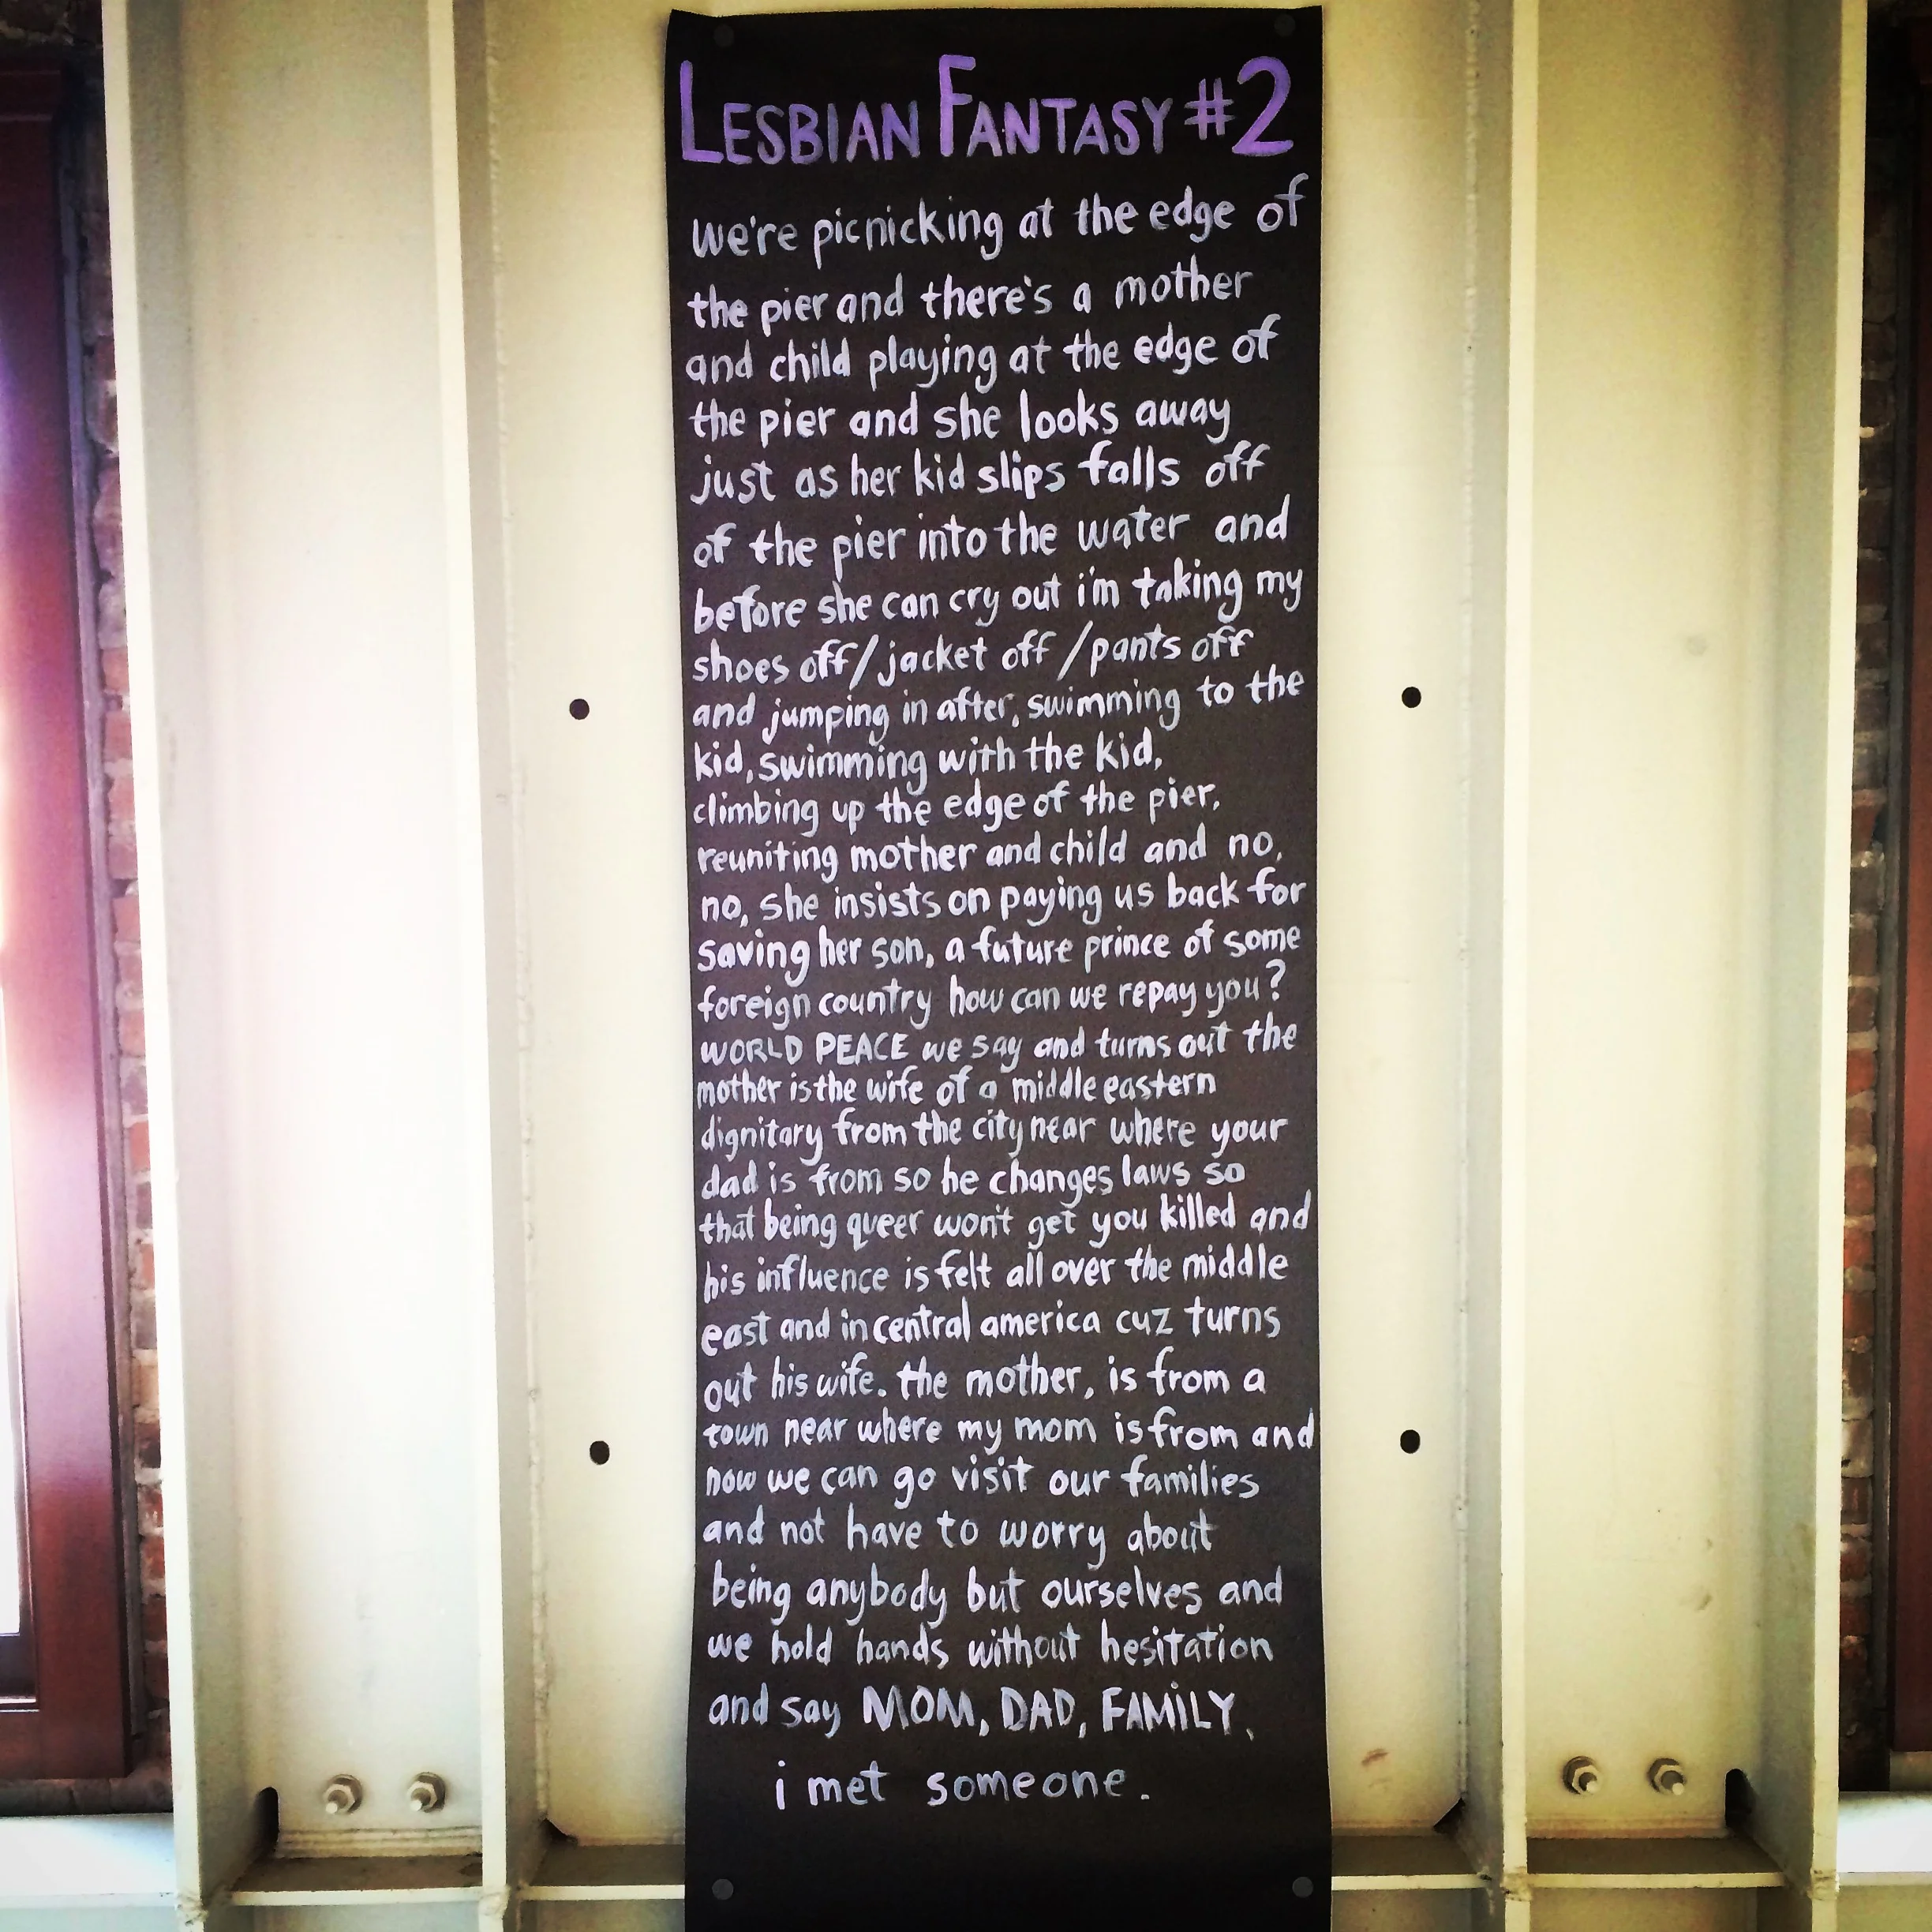 LESBIAN FANTASY #2
we're picnicking at the edge of
the pier and there's a mother
and child playing at the edge of
the pier and she looks away
just as her kid slips falls off
of the pier into the water and
before she can cry out i'm taking my
shoes off/jacket off/pants off
and jumping in after, swimming to the
kid, swimming with the kid,
climbing up the edge of the pier,
reuniting mother and child and no,
no, she insists on paying us back for
saving her son, a future prince of some
foreign country how can we repay you?
WORLD PEACE we say and turns out the
mother is the wife of a middle eastern
dignitary from the city near where your
dad is from so he changes laws so
that being queer won't get you killed and
his influence is felt all over the middle
east and in central america cuz turns
out his wife. the mother, is from a
town near where my mom is from and
now we can go visit our families
and not have to worry about
being anybody but ourselves and
we hold hands without hesitation
and say MOM, DAD, FAMILY,
i met someone.